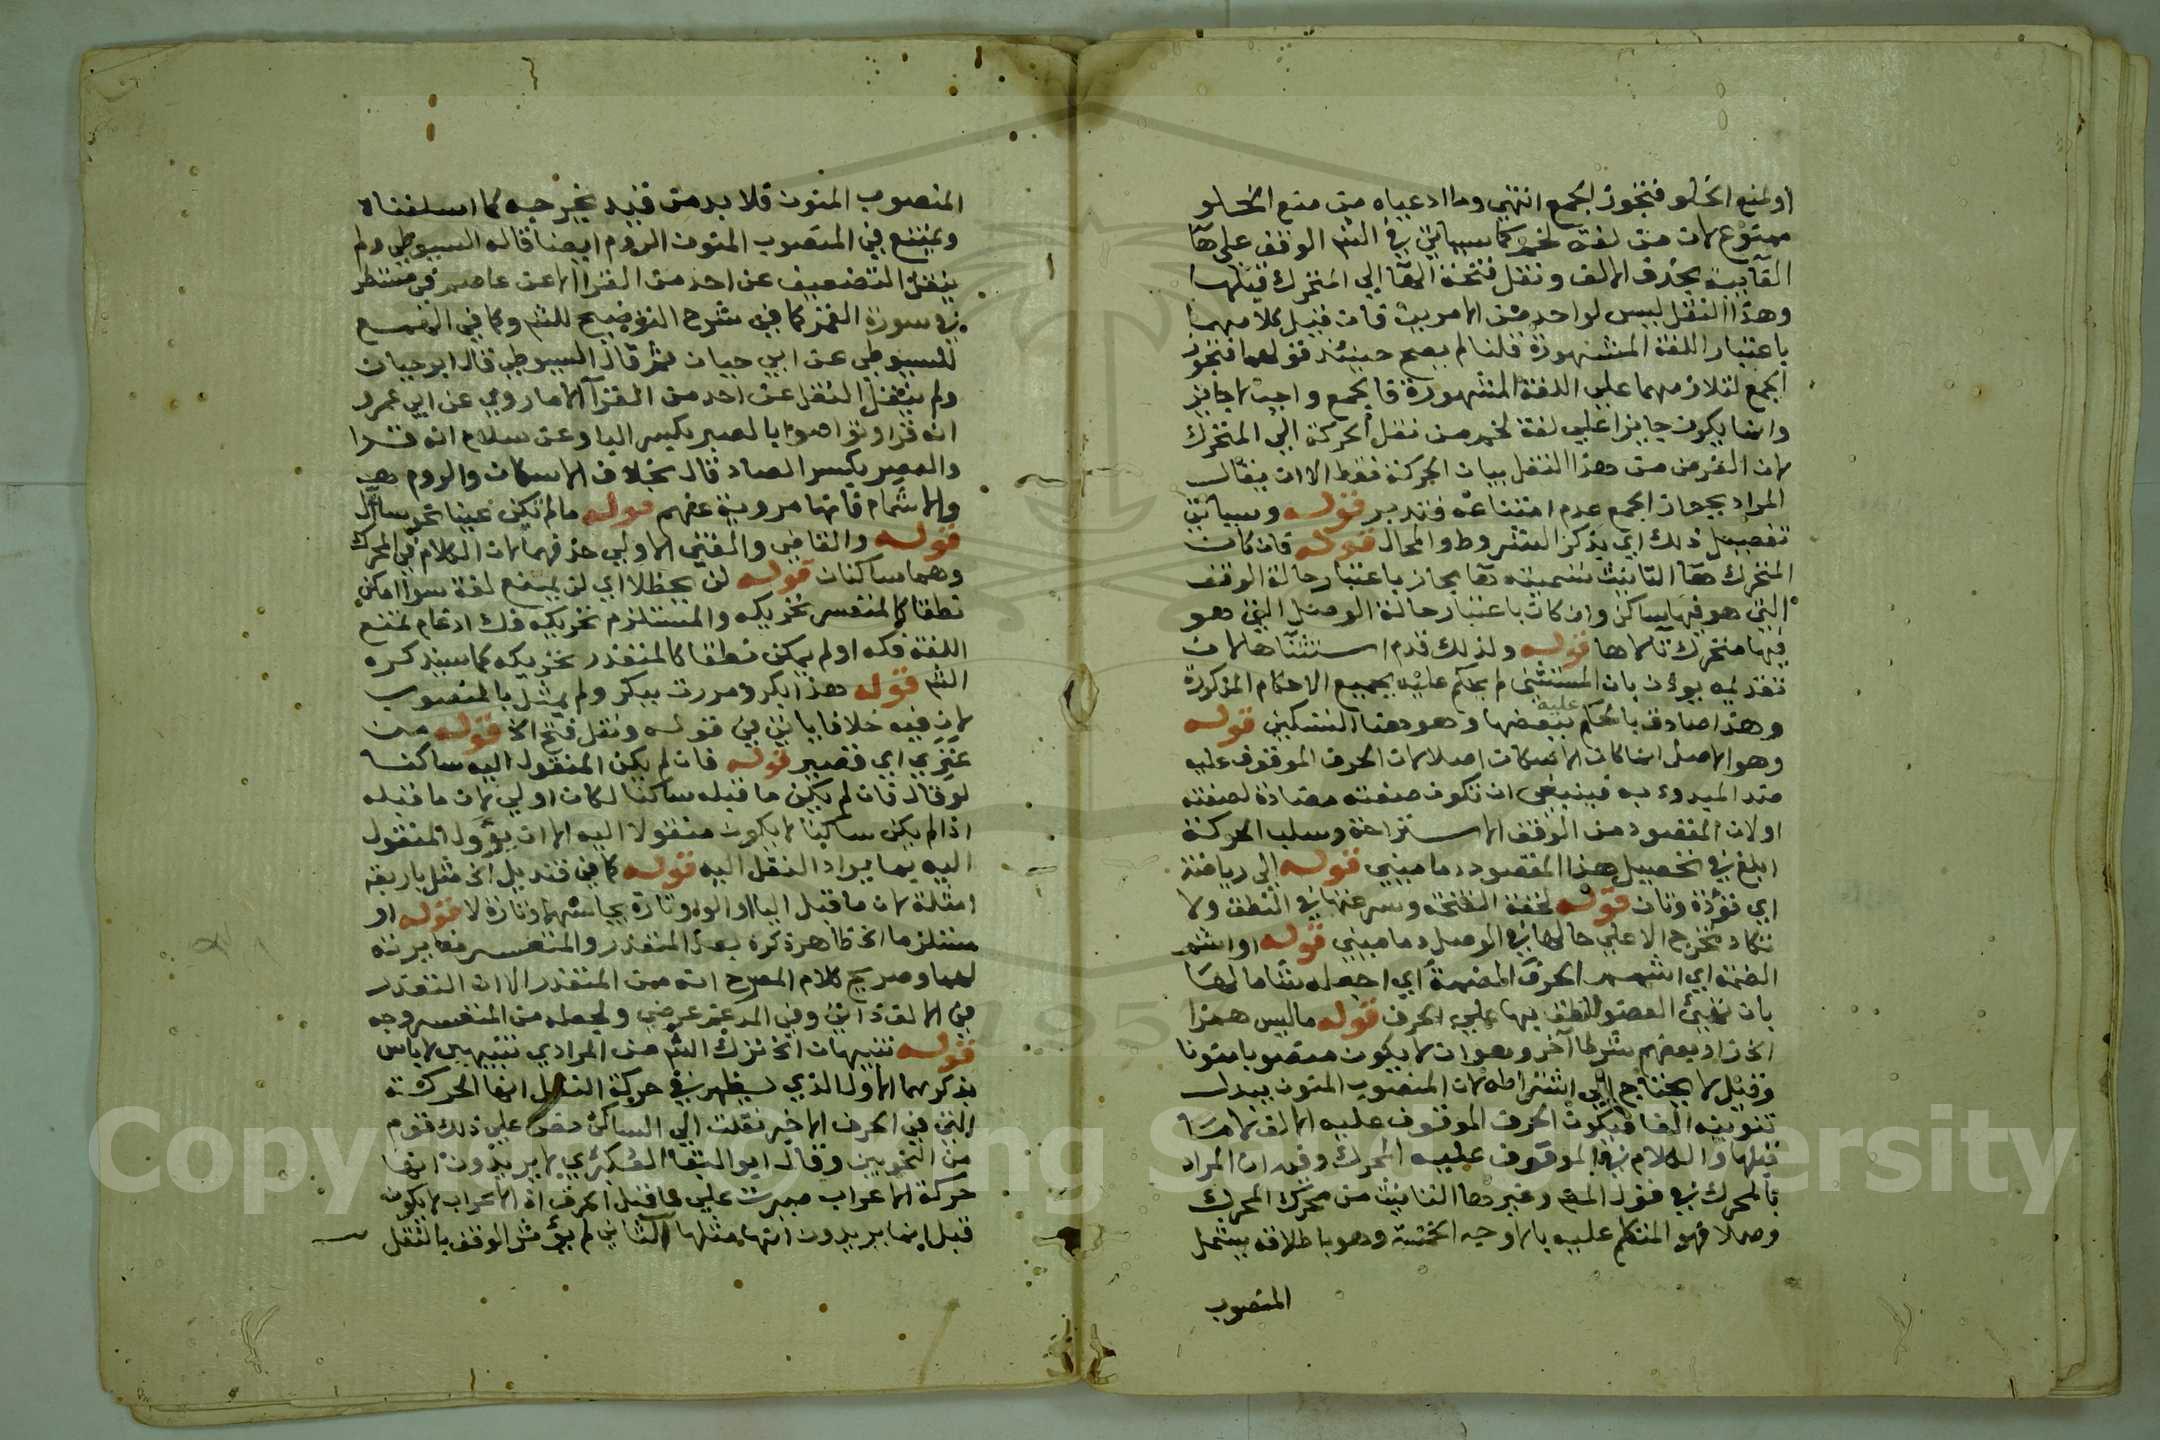 او لمنع الخلو فتجوز الجمع انتهى وما ادعياه من منع الخلو
ممنوع لان من لغة لخم كما سياتي في الشم الوقف على ها
الغايبة بحذف الالف ونقل فتحة الها الى المتحرك قبلها
وهذا النقل ليس لواحد من الامرين فان قيل كلامهما
باعتبار اللغة المشهورة قلنا لم يصح حينئذ قولهما فتجوز
الجمع لتلازمهما على اللغة المشهورة فالجمع واجب لا جايز
وانما يكون جايزا على لغة لخم من نقل الحركة الى المتحرك
لان الغرض من هذا النقل بيان الحركة فقط الا ان يقال
المراد بجواز الجمع عدم امتناعه فتدبر قوله وسياتي
تفصيل ذلك اي بذكر الشروط والمحال قوله فان كان
المتحرك ها التانيث تسميته ها مجاز باعتبار حالة الوقف
التي هو فيها ساكن وان كان باعتبار حالة الوصل التي هو
فيها متحرك تا لا ها قوله ولذلك قدم استثناها لان
تقديمه يوذن بان المستثنى لم يحكم عليه بجميع الاحكام المذكورة
وهذا صادق بالحكم عليه ببعضها وهو هنا التسكين قوله
وهو الاصل انما كان الاسكان اصلا لان الحرف الموقوف عليه
ضد المبدوء به فينبغي ان تكون صفته مضادة لصفته
او لان المقصود من الوقف الاستراحة وسلب الحركة
ابلغ في تحصيل هذا المقصود دماميني قوله الى رياضة
اي تؤدة وتان قوله لخفة الفتحة وسرعتها في النطق ولا
تكاد تخرج الا على حالها في الوصل دماميني قوله او اشمم
الضمة اي اشمم الحرف الضمة اي اجعله شاما لها
بان تهيئ العضو للنطق بها على الحرف قوله ما ليس همزا
الخ زاد بعضهم شرطا آخر وهو ان لا يكون منصوبا منونا
وقيل لا يحتاج الى اشتراطه لان المنصوب المنون يبدل
تنوينه الفا فيكون الحرف الموقوف عليه الالف لا ما
قبلها والكلام في الموقوف عليه المحرك وفيه ان المراد
بالمحرك في قول المص وغير ها التانيث من محرك المحرك
وصلا فهو المتكلم عليه بالاوجه الخمسة وهو باطلاقه يشمل
المنصوب
المنصوب المنون فلا بد من قيد يخرجه كما اسلفناه
ويمتنع في المنصوب المنون الروم ايضا قاله السيوطي ولم
ينقل التضعيف عن احد من القرا الا عن عاصم في مستطر
في سورة القمر كما في شرح التوضيح للشم وكما في الهمع
للسيوطي عن ابي حيان ثم قال السيوطي قال ابو حيان
ولم ينقل النقل عن احد من القرآ الا ما روي عن ابي عمرو
انه قرا وتواصوا بالصبر بكسر البا وعن سلام انه قرا
والعصر بكسر الصاد قال بخلاف الاسكان والروم
والاشمام فانها مروية عنهم قوله ما لم تكن عينا نحو سأل
قوله والقاضي والمفتي الاولى حذفهما لان الكلام في المحرك
وهما ساكنان قوله لن يحظلا اي لن يمنع لغة سوا امكن
نطقا كالمتعسر تحريكه والمستلزم تحريكه فك ادغام تمتنع
اللغة فكه او لم يمكن نطقا كالمتعذر تحريكه كما سيذكره
الشم قوله هذا بكر ومررت ببكر ولم يمثل بالمنصوب
لان فيه خلافا ياتي في قوله ونقل فتح الخ قوله من
عنزي اي قصير قوله فان لم يكن المنقول اليه ساكنا
لو قال فان لم يكن ما قبله ساكنا لكان اولى لان ما قبله
اذا لم يكن ساكنا لا يكون منقولا اليه الا ان يؤول المنقول
اليه بما يراد النقل اليه قوله كما في قنديل الخ مثل باربعة
امثلة لان ما قبل اليا والواو تارة يجانسهما وتارة لا قوله او
مستلزما الخ ظاهر ذكره بعد المتعذر والمتعسر مغايرته
لهما وصريح كلام المصرح انه من المتعذر الا ان التعذر
في الالف ذاتي وفي المدغم عرضي ولجعله من المتعسر وجه
قوله تنبيهات الخ ترك الشم من المرادي تنبيهين لا باس
بذكرهما الاول الذي يظهر في حركة النقل انها الحركة
التي في الحرف الاخير نقلت الى الساكن نص على ذلك قوم
من النحويين وقال ابو البقاء العكبري لا يريدون انها
حركة الاعراب صيرت على ما قبل الحرف اذ الاعراب لا يكون
قبل انما يريدون انها مثلها الثاني لم يؤثر الوقف بالنقل